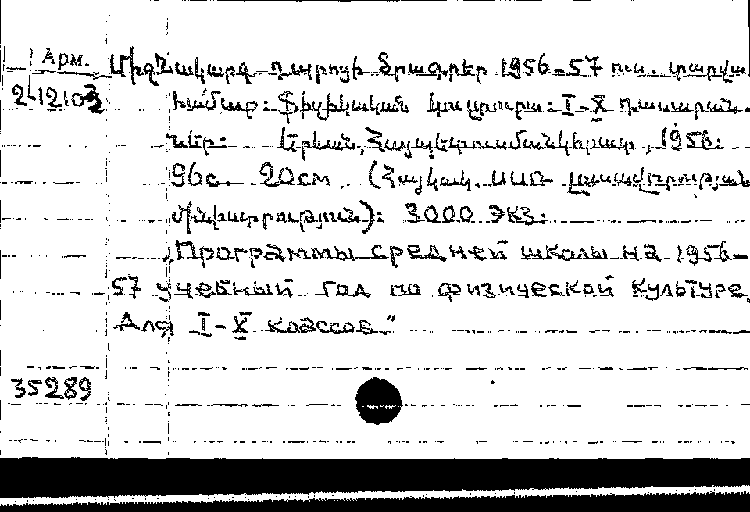 Арм.
Միջնակարգ դպրոցի ծրագրեր 1956-57 ուս. տարվա
2-12103
համար: Ֆիզիկական կուլտուրա: I-X դասարան-
ներ: Երևան, Հայպետուսմանկհրատ, 1956:
96с. 20см (Հայկակ. ՍՍՌ լուսավորության
մինիստրություն): 3000 экз:
„Программы средней школы на 1956-
57 учебный год по физической культуре
для I-X классов"
35289